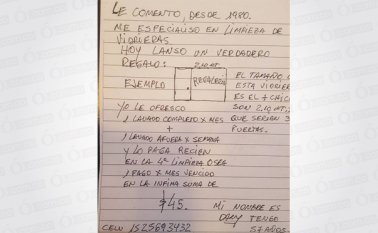 LE COMENTO, DESDE 1980.
ME ESPECIALISO EN LIMPIEZA DE
VIDRIERAS
HOY LANSO UN VERDADERO
REGALO:
2,10 MT.
EJEMPLO
REGALERIA
EL TAMAÑO
ESTA VIDRIER
ES EL + CHIC
SON 2,10 MT,
QUE SERIAN 3
PUERTAS.
YO LE OFRESCO
1 LAVADO COMPLETO X MES
+
1 LAVADO AFUERA X SEMANA
Y LO PAGA RECIEN
EN LA 4ª LIMPIEZA OSEA
1 PAGO X MES VENCIDO
EN LA INFIMA SUMA DE
$45.
MI NOMBRE ES
DANY TENGO
57 AÑOS.
CELU 1525693432